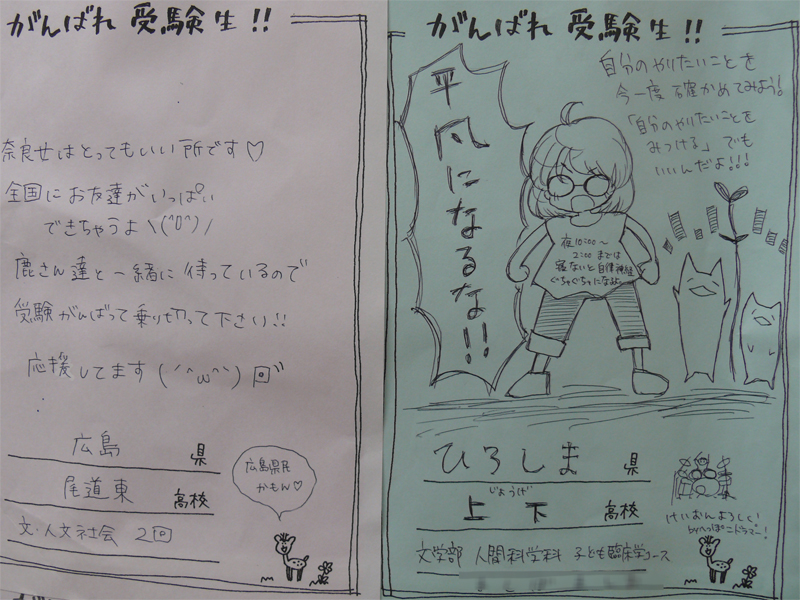 がんばれ 受験生!!
奈良女はとってもいい所です♡
全国にお友達がいっぱい
できちゃうよ\(^0^)/
鹿さん達と一緒に待っているので
受験がんばって乗りきって下さい!!
応援してます(´^ω^`)回"
広島 県
尾道東 高校
文・人文社会 2回
広島県民
かもん♡
がんばれ 受験生!!
自分のやりたいことを
今一度確かめてみよう!
「自分のやりたいことを
みつける」でも
いいんだよ!!!
平凡になるな!!
夜10:00〜
2:00までは
寝ないと自律神経
ぐちゃぐちゃになるよ
ひろしま 県
じょうげ
上下 高校
文学部 人間科学科 子ども臨床学コース
けいおんよろしく
byへっぽこドラマー!